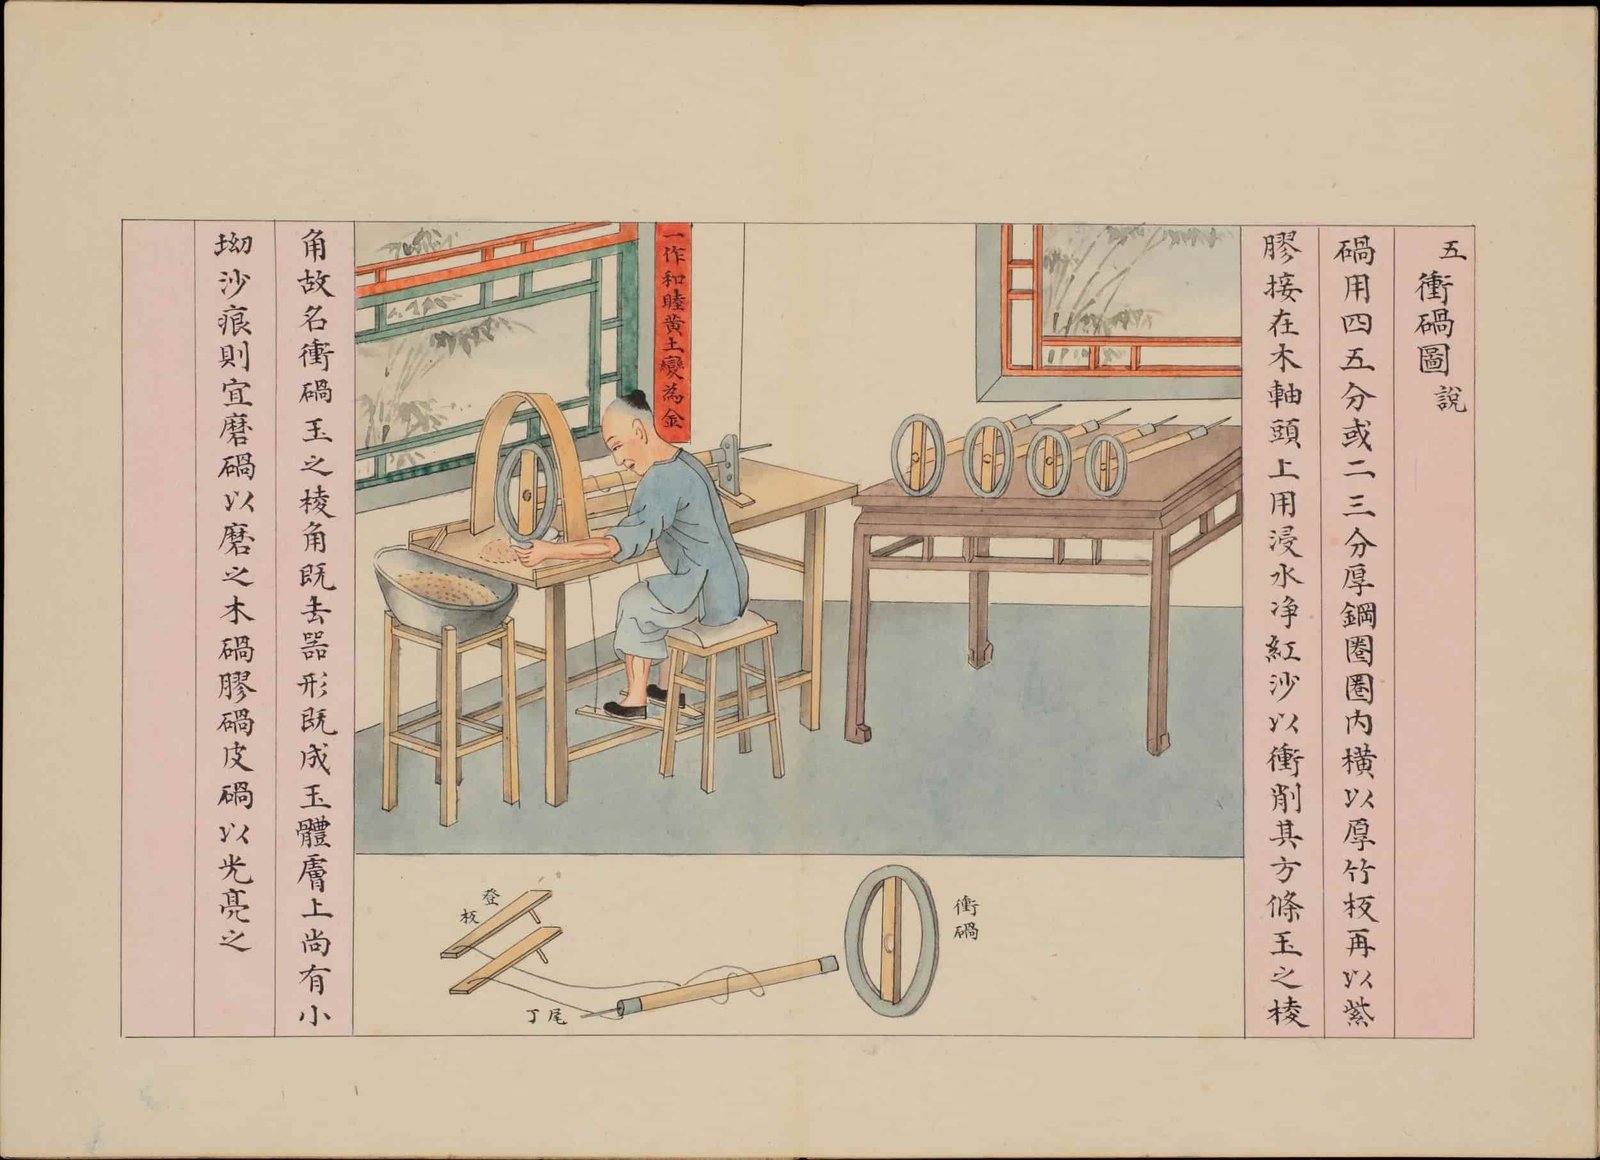 五 衝碢圖 說
碢用四五分或二三分厚鋼圈圈內橫以厚竹板再以紫
膠接在木軸頭上用浸水净紅沙以衝削其方條玉之棱
角故名衝碢玉之棱角既去器形既成玉體膚上尚有小
坳沙痕則宜磨碢以磨之木碢膠碢皮碢以光亮之
一作和睦黃土變為金
衝碢
登板
尾丁